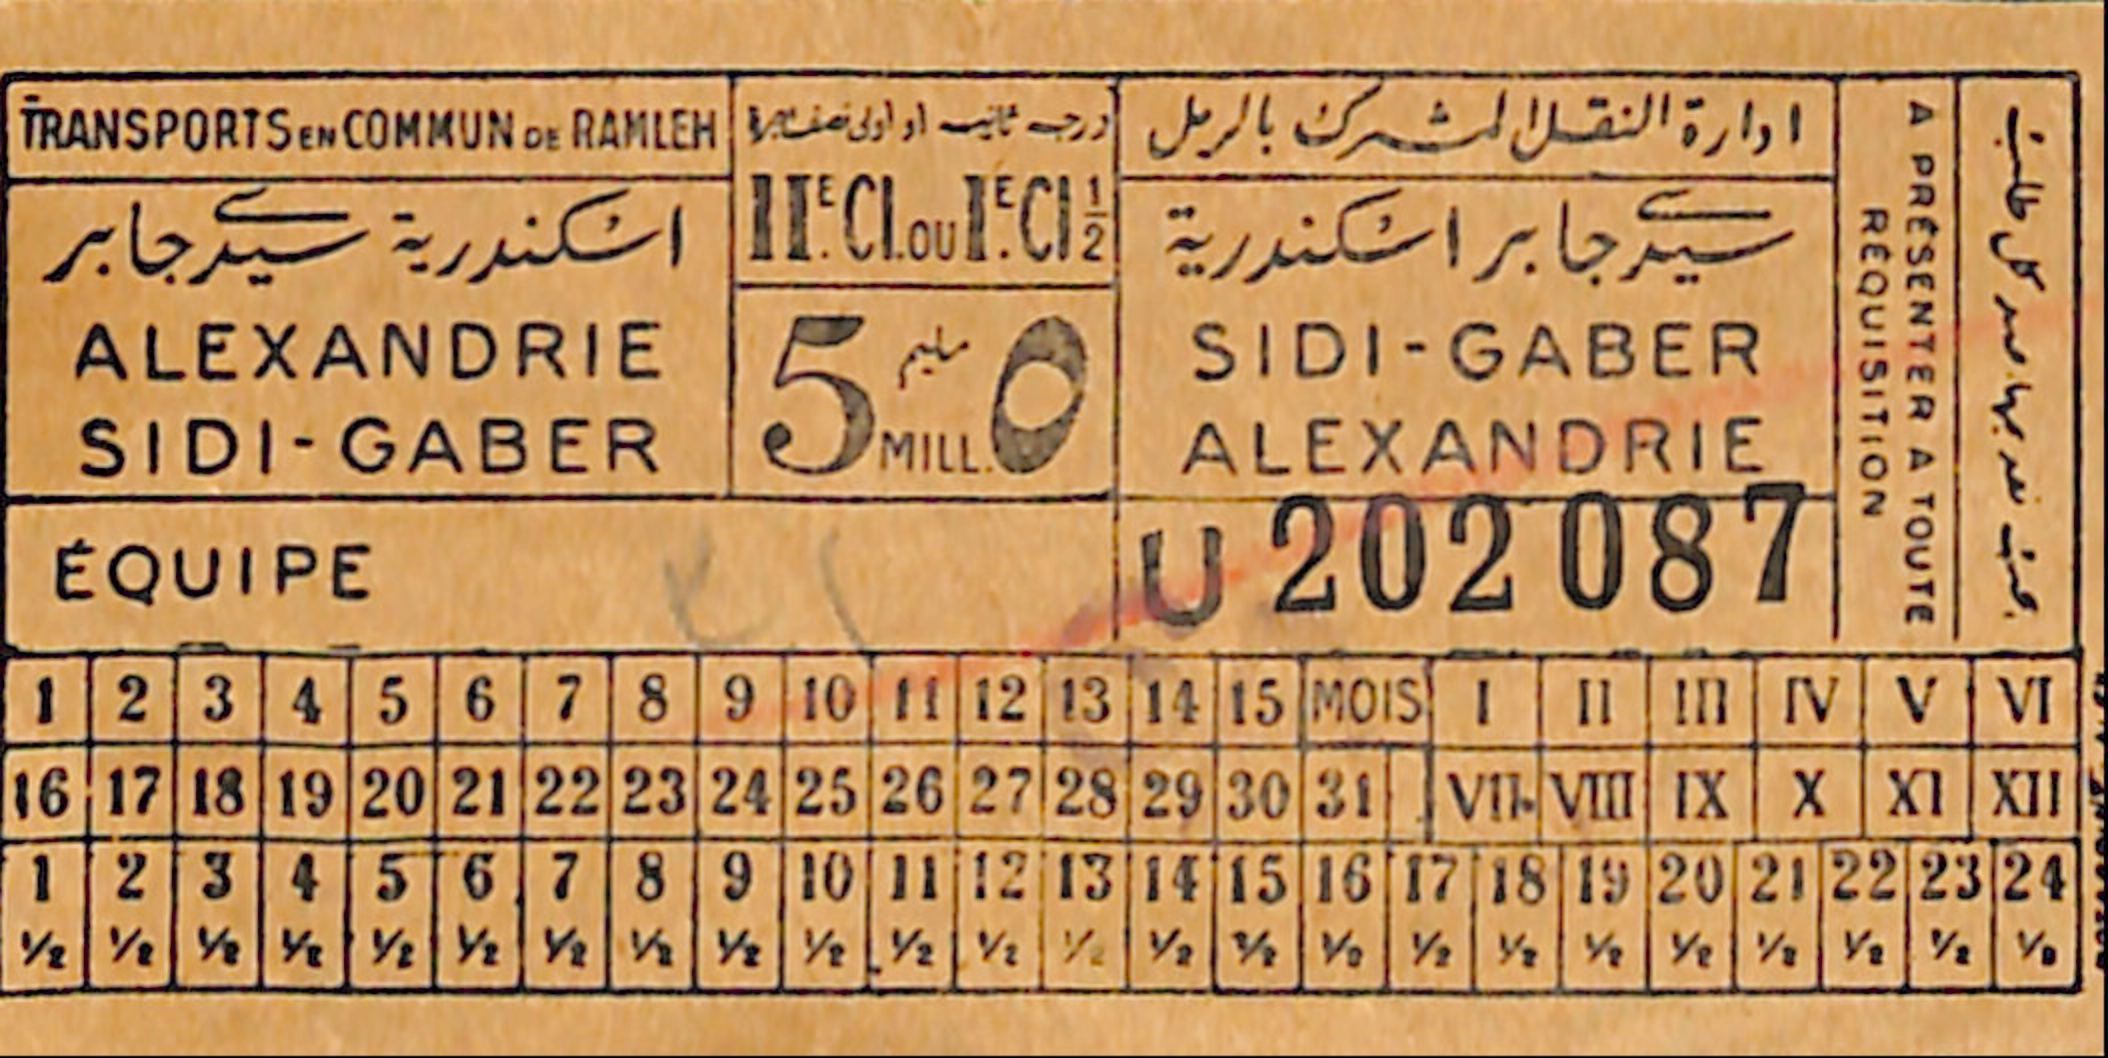 TRANSPORTS EN COMMUN DE RAMLEH
اسكندرية سيدى جابر
ALEXANDRIE
SIDI-GABER
درجه ثانيه او اولى نصف تذكرة
IIE. Cl. OU IE. Cl 1/2
5 مليم 0
MILL.
ادارة النقل المشترك بالرمل
سيدى جابر اسكندرية
SIDI-GABER
ALEXANDRIE
ÉQUIPE
U 202087
A PRÉSENTER A TOUTE
RÉQUISITION
كل طلب
1 2 3 4 5 6 7 8 9 10 11 12 13 14 15 MOIS I II III IV V VI
16 17 18 19 20 21 22 23 24 25 26 27 28 29 30 31 VII VIII IX X XI XII
1 2 3 4 5 6 7 8 9 10 11 12 13 14 15 16 17 18 19 20 21 22 23 24
1/2 1/2 1/2 1/2 1/2 1/2 1/2 1/2 1/2 1/2 1/2 1/2 1/2 1/2 1/2 1/2 1/2 1/2 1/2 1/2 1/2 1/2 1/2 1/2